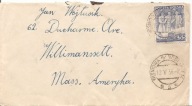 Jan Wojtowik.
61 Ducharme Ave.
Willimansett,
Mass. Ameryka.